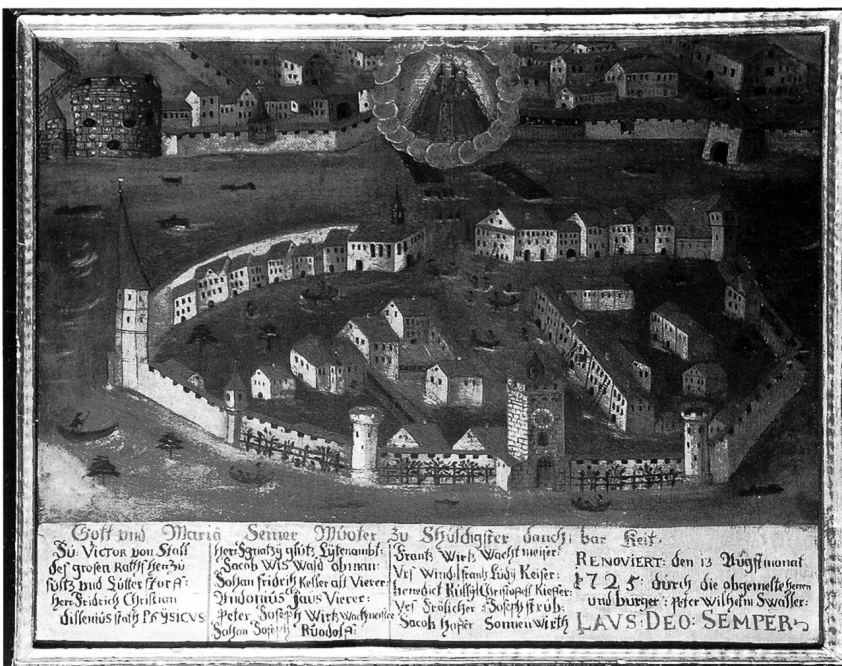 Gott und Mariä Seiner Muoter zu Shuldigster danck bar Keit.
Ju. VICTOR von Stall
des grosen Raths herr zu
Herr Fridrich Christian
dissenius stath PHYSICUS
Herr Ignatzÿ glutz
Jacob WisWald obman:
Johan fridrich Keller alt Vierer:
Andonius Jaus Vierer:
Peter Joseph Wirtz Wachmeister
Johan Joseph Ruodolf:
Frantz Wirtz Wachtmeister:
Urs Windi: frantz Ludÿ Keiser:
benedict
Urs Frölicher: Joseph strub:
Jacob Hofer Sonnenwirth
RENOVIERT: den 13 Augstmonat
1725: durch die obgemelte Herren
und burger: Peter Wilhelm Swaller:
LAUS: DEO: SEMPER